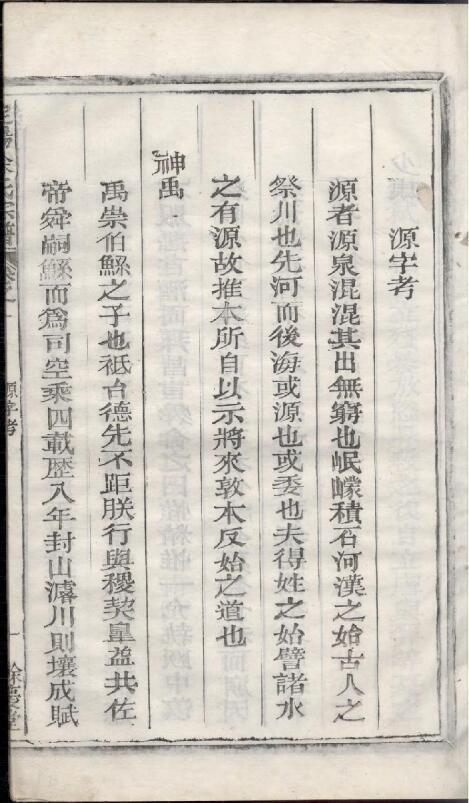 源字考
源者源泉混混其出無窮也岷嶓積石河漢之始古人之
祭川也先河而後海或源也或委也夫得姓之始譬諸水
之有源故推本所自以示將來敦本反始之道也
神禹
禹崇伯鯀之子也祗台德先不距朕行與稷契臯益共佐
帝舜嗣鯀而為司空乘四載歷八年封山濬川則壤成賦
源字考
一
餘慶堂